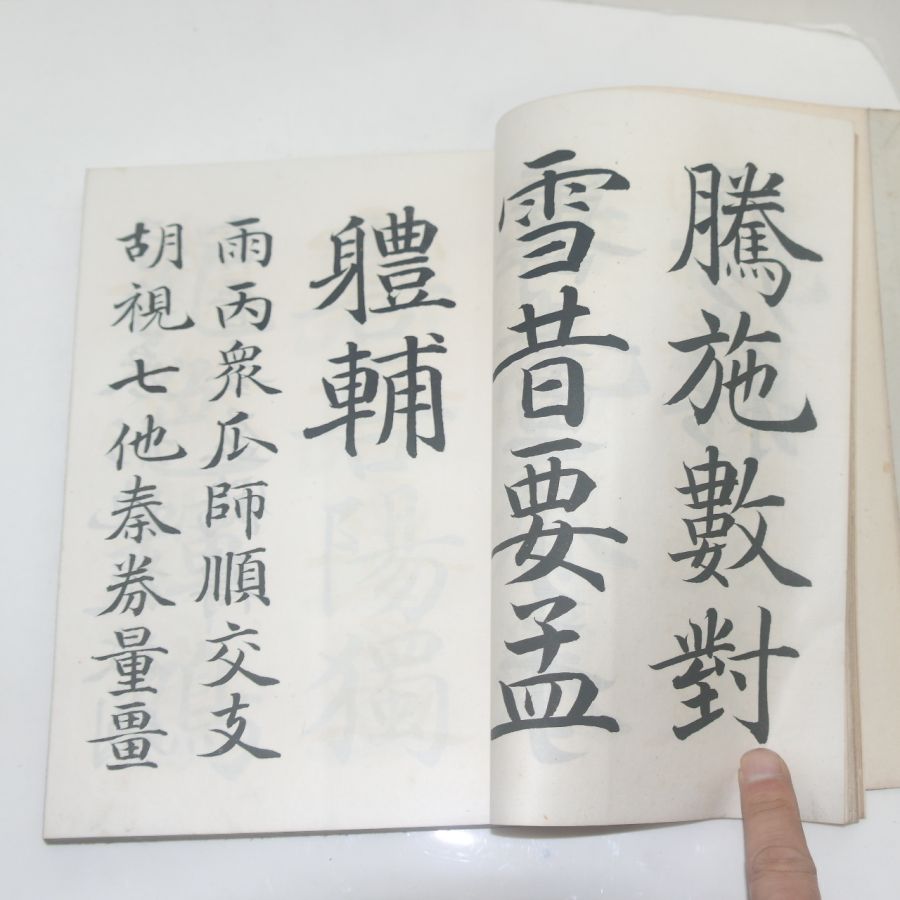 騰施數對
雪昔要孟
軆輔
雨丙衆瓜師順交支
胡視七他秦券量畺